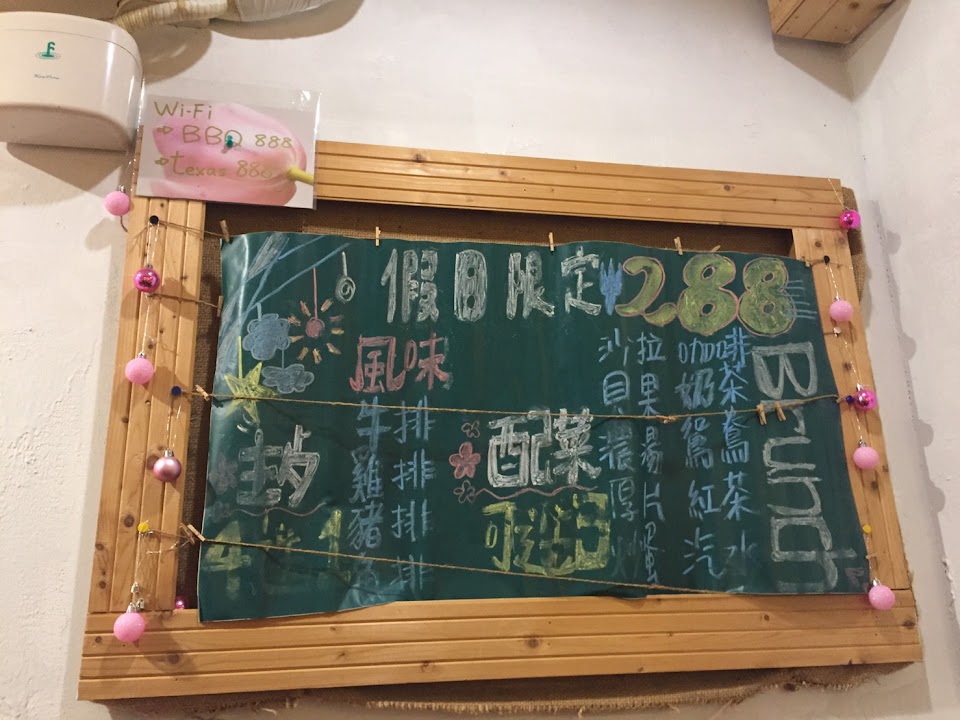 Wi-Fi
BBQ 888
texas 888
假日限定 288
Brunch
風味
牛排
雞排
豬排
魚排
4選1
配菜
沙拉
貝果
濃湯
厚片
炒蛋
咖啡
奶茶
鴛鴦
紅茶
汽水